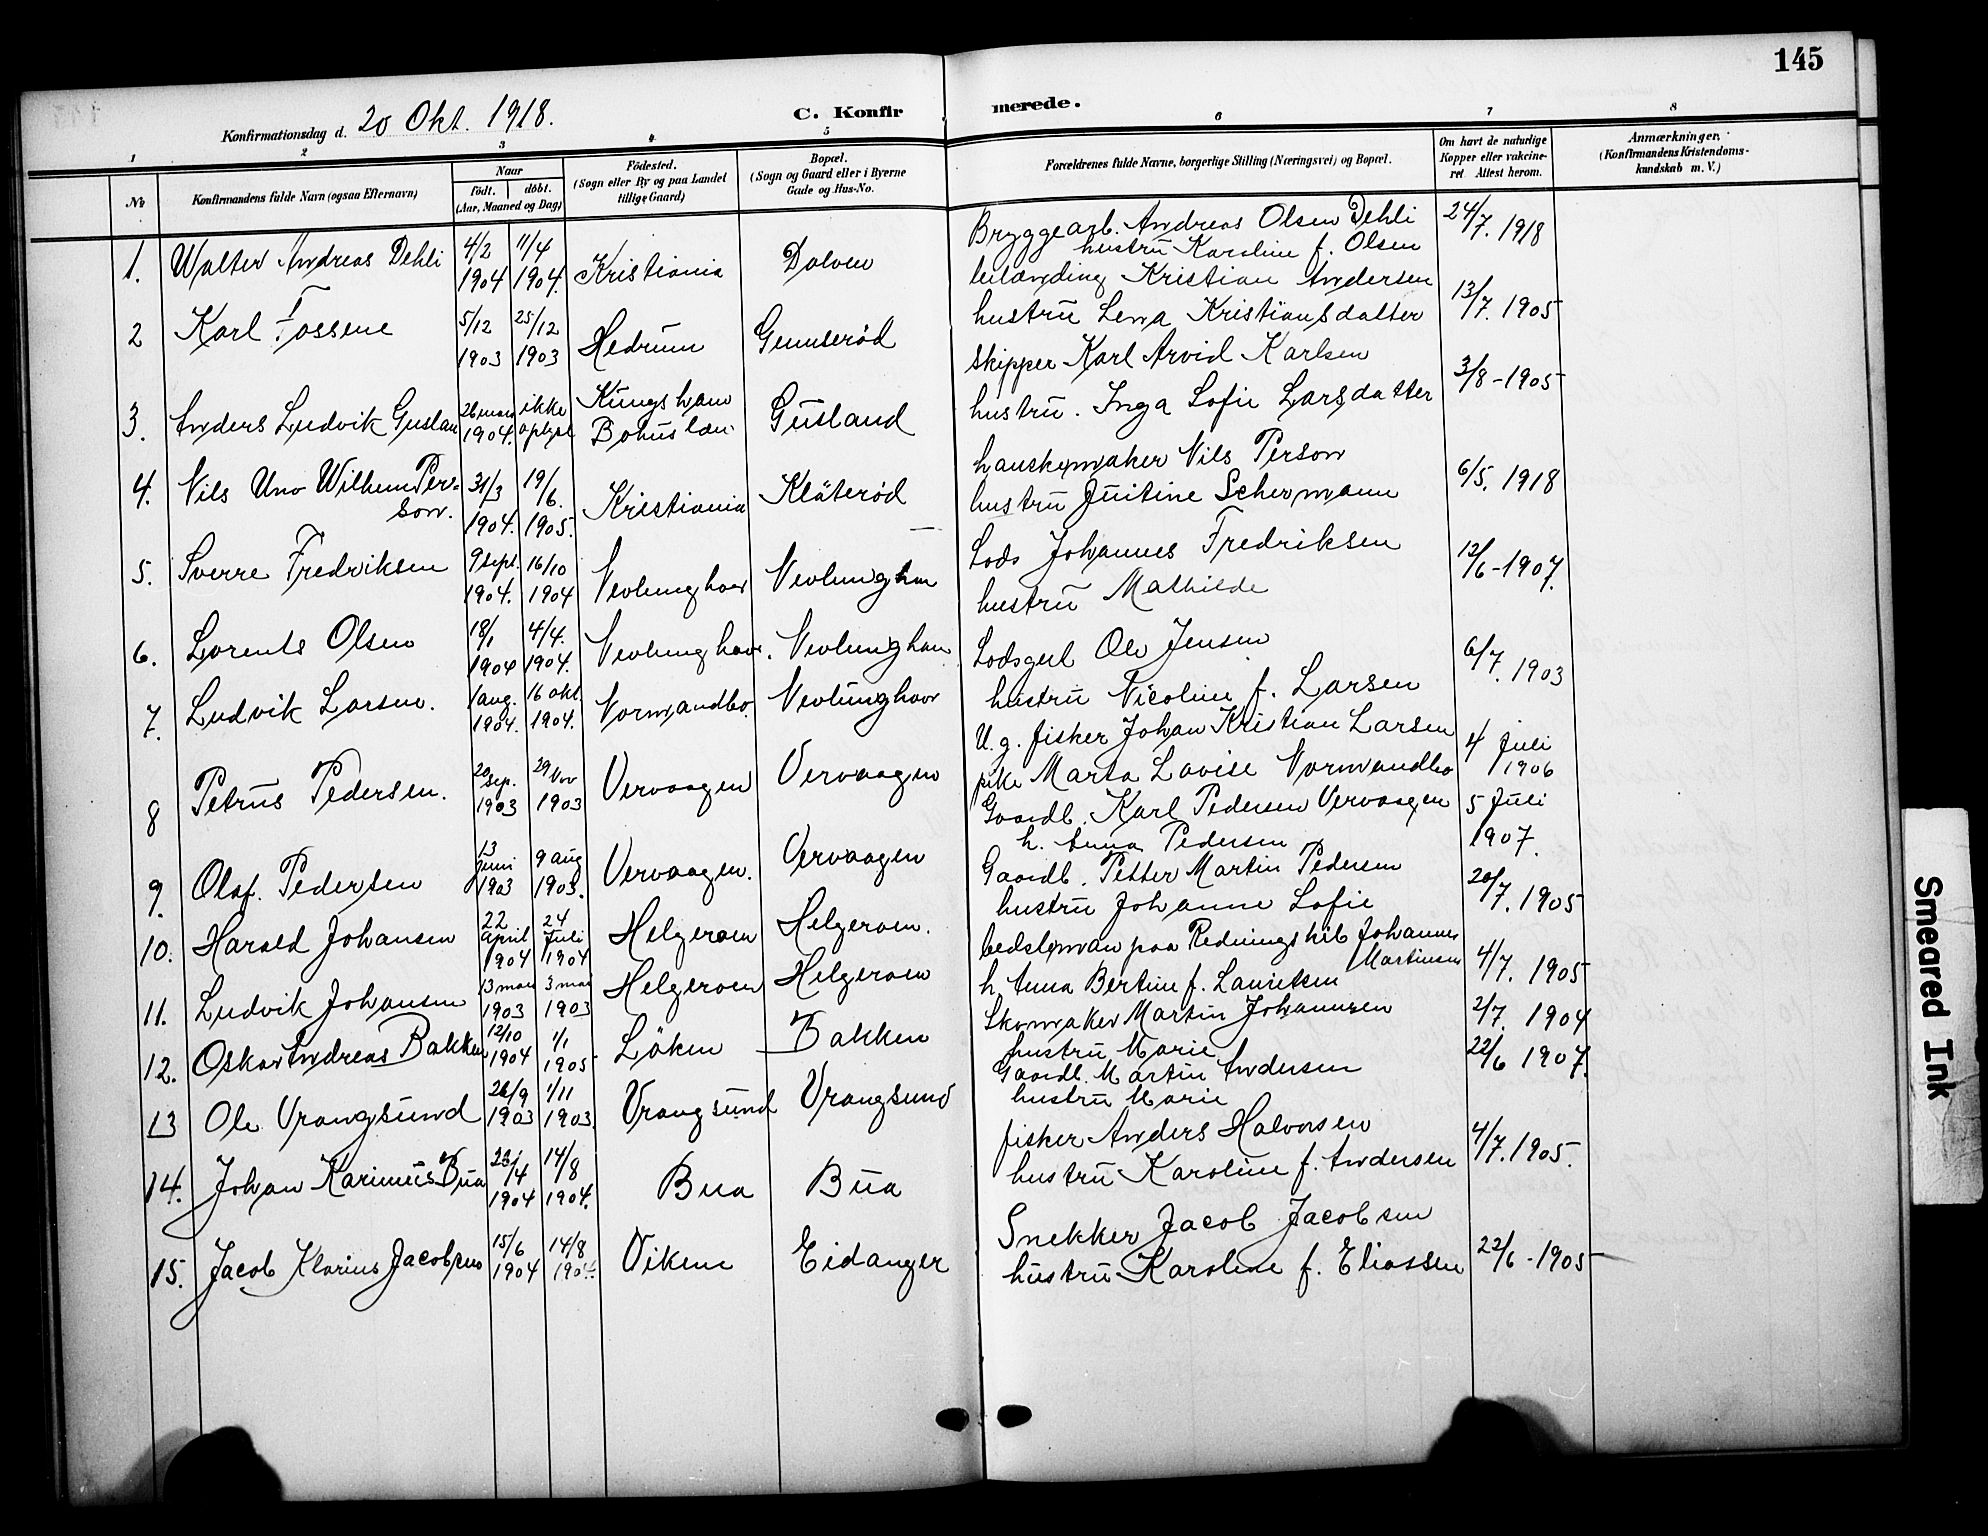 145
Konfirmationsdag d. 20 Okt. 1918.
C. Konfirmerede.
1 2 3 4 5 6 7 8
No
Konfirmandens fulde Navn (ogsaa Efternavn)
Naar
født. døbt.
(Aar, Maaned og Dag)
Fødested.
(Sogn eller By og paa Landet
tillige Gaard)
Bopæl.
(Sogn og Gaard eller i Byerne
Gade og Hus-No.
Forældrenes fulde Navne, borgerlige Stilling (Næringsvei) og Bopæl.
Om havt de naturlige
Kopper eller vakcine-
ret Attest herom.
Anmærkninger.
(Konfirmandens Kristendoms-
kundskab m. V.)
1. Walter Andreas Dehli 4/2 1904 11/4 1904. Kristiania Dolven Bryggearb. Andreas Olsen Dehli 24/7. 1918
hustru Karoline f. Olsen
2 Karl Fossene 5/12 1903 25/12 1903 Hedrum Gunnerød Kristian Andersen 13/7. 1905
hustru Lena Kristiansdatter
3. Anders Ludvik Guslan 26 1904. ikke oplyst Kungshavn Bohuslæn Gusland Skipper Karl Arvid Karlsen 3/8-1905
hustru. Inga Sofie Larsdatter
4. Nils Uno Wilhem Per-
son. 31/3 1904. 19/6. 1905. Kristiania Kläterød hanskemaker Nils Person 6/5. 1918
hustru Schermann
5. Sverre Fredriksen 9 sept. 1904. 16/10 1904 Nevlunghavn Nevlunghavn Lods Johannes Fredriksen 12/6-1907.
hustru Mathilde
6. Lorents Olsen 18/1 1904 4/4. 1904. Nevlunghavn. Nevlunghavn Ole Jensen 6/7. 1903
hustru Nicoline f. Larsen
7. Ludvik Larsen. 1 aug. 1904. 16 okt. 1904. Normandbo. Nevlunghavn U. g. fisker Johan Kristian Larsen 4 Juli 1906
pike Marta Lovise Normandbo
8 Petrus Pedersen. 20 Sep. 1903 29 Nov 1903 Vervaagen Vervaagen Gaardb. Karl Pedersen Vervaagen 5 Juli 1907.
h. Anna Pedersen
9. Olaf. Pedersen 13 Juni 1903 9 aug 1903. Vervaagen. Vervaagen Gaardb. Petter Martin Pedersen 20/7. 1905
hustru Johanne Sofie
10. Harald Johansen 22 april 1904 24 Juli 1904 Helgeroen Helgeroen. bedsteman paa Johannes 4/7. 1905
Martinsen
h. Anna Bertine f. Lauritsen
11. Ludvik Johansen 13 1903 3 mai 1903 Helgeroen Helgeroen Skomaker Martin Johannesen 2/7. 1904
hustru Marie
12. Oskar Andreas Bakken 12/10 1904 1/1 1905 Löken Bakken Gaardb. Martin Andersen 22/6 1907.
hustru Marie
13 Ole Vrangsund 26/9 1903 1/11 1903. Vrangsund Vrangsund fisker Anders Halvorsen 4/7. 1905.
hustru Karoline f. Andersen
14. Johan Karinius Bua 26/4 1904 14/8 1904. Bua Bua Snekker Jacob Jacobsen 22/6-1905
hustru Karoline f. Eliassen
15. Jacob Klarius Jacobsen 15/6 1904 14/8 1904. Vikene Eidanger
Smeared Ink